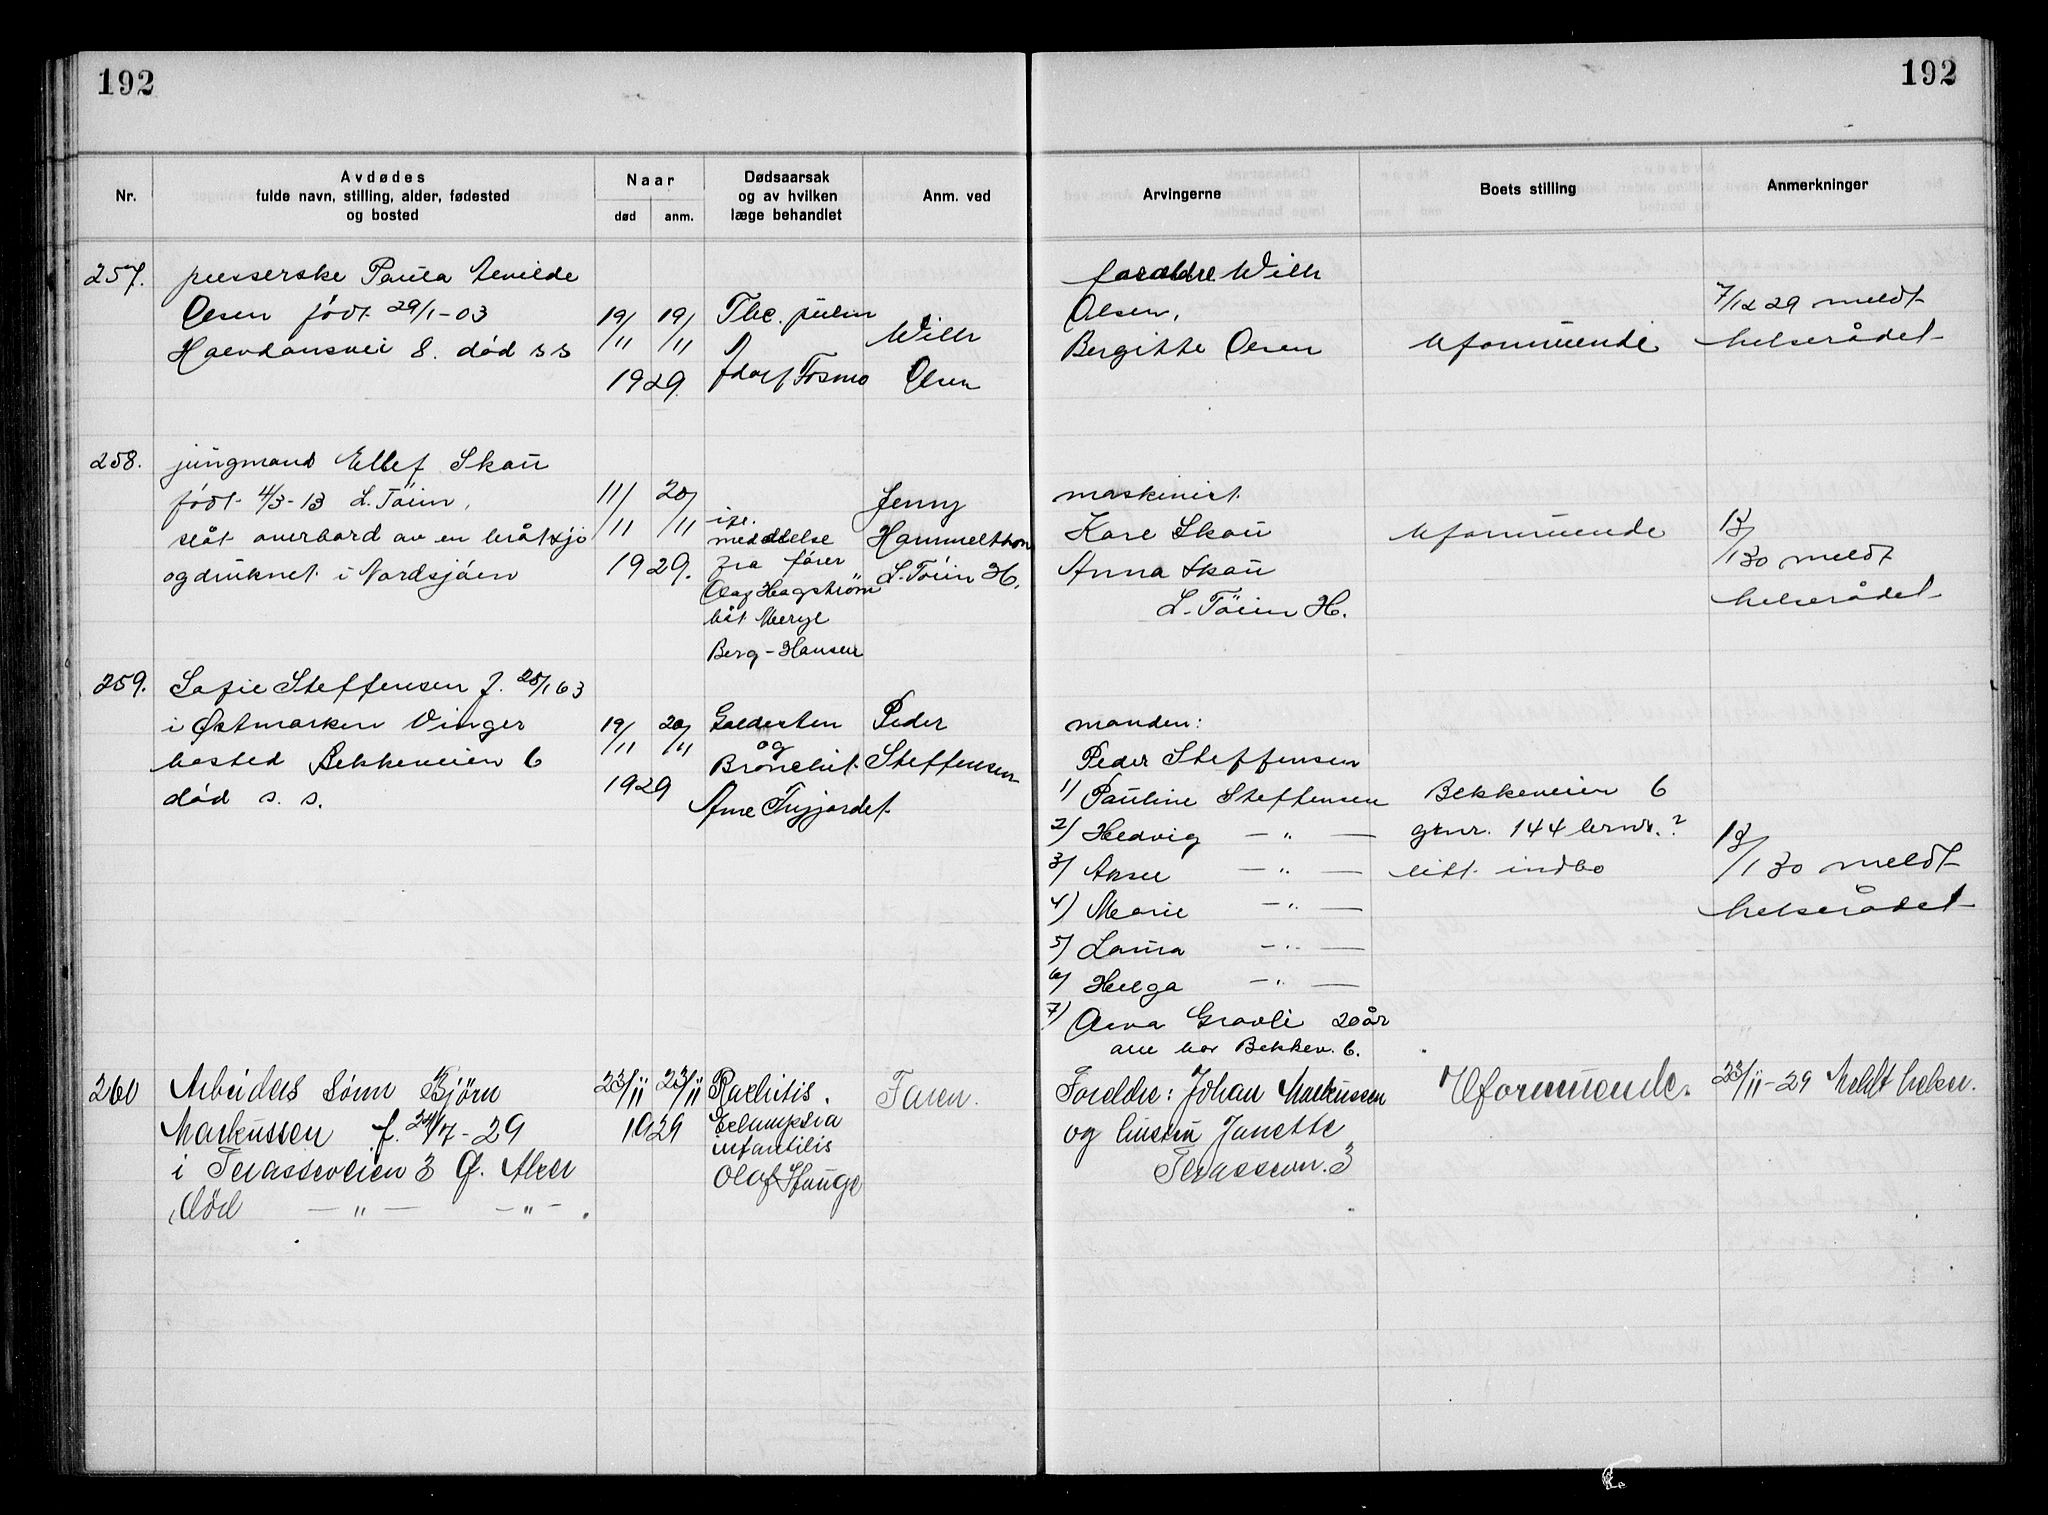 192
192
Nr.
Avdødes
fulde navn, stilling, alder, fødested
og bosted
Naar
død
anm.
Dødsaarsak
og av hvilken
læge behandlet
Anm. ved
Arvingerne
Boets stilling
Anmerkninger
257.
presserske Paula
Olsen født 29/1-03
8. død s s
19/11 19/11
1929.
Tbc. pulm
Adolf Fosmo
Wilh
Olsen
foraldre Wilh
Olsen,
Bergitte Olsen
Uformuende
7/12 29 meldt
helserådet
258.
jungmand Ellef Skau
født 4/3-13 L. Töien,
slåt overbord av en bråtsjø
og druknet i Nordsjöen
11/11 20/11
1929.
meddelse
fra fører
Olaf Hagström
båt Meryl
Berg-Hansen
Jenny
L. Töien H.
maskinist
Kare Skau
Anna Skau
L. Töien H.
Uformuende
/1 30 meldt
helserådet
259.
Sofie Steffensen f. 28/1 63
i Østmarken Vinger
bosted Bekkeveien 6
død s. s.
19/11 20/11
1929
Galdesten
og
Bronchit
Arne
Peder
Steffensen
manden:
Peder Steffensen
1) Pauline Steffensen
2) Hedvig — " —
3) — " —
4) Marie — " —
5) Laura — " —
6) Helga — " —
7) Gravli 20 år
alle bor Bekkev. 6.
Bekkeveien 6
gtnr. 144 brnr. ?
litt indbo
/1 30 meldt
helserådet
260
Arbeiders sønn Bjørn
Markussen f. 24/7-29
i Terasseveien 3 Ø. Aker
død — " — — " — .
23/11 23/11
1929
Rachitis.
Eclampsia
infantilis
Olaf
Faren.
Foreldre: Johan Markussen
og hustru Janette
Terassevn. 3
Uformuende.
23/11-29 Meldt helser.